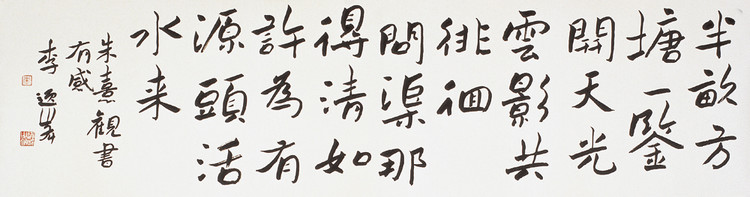 半畝方
塘一鑒
開天光
雲影共
徘徊
問渠那
得清如
許為有
源頭活
水来
朱熹觀書
有感
李逸峯